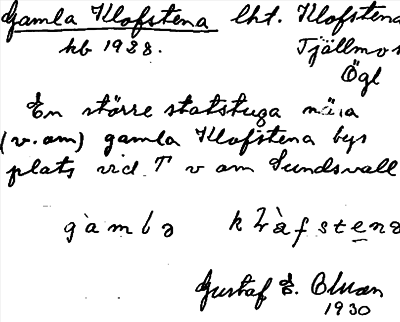 Gamla Klofstena lht. Klofstena
kb 1928. Tjällmos
Ögl
En större statstuga nära
(v. om) gamla Klofstena bys
plats vid T v om Sundsvall
Gustaf E.
1930